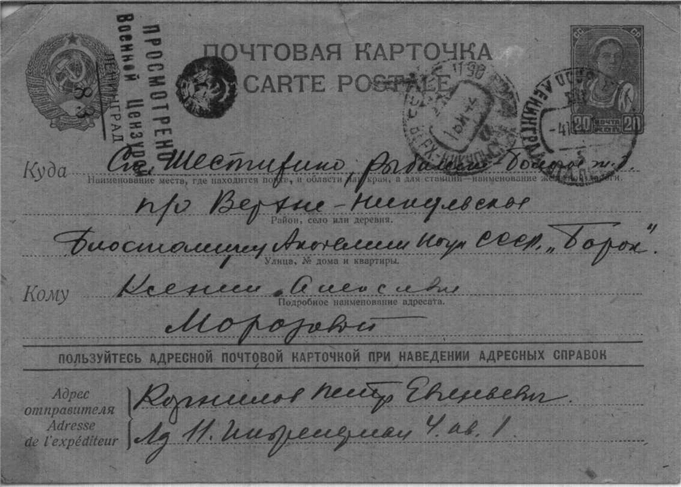 ПРОСМОТРЕНО
Военной Цензурой
ЛЕНИНГРАД
83
ПОЧТОВАЯ КАРТОЧКА
CARTE POSTALE
20 ПОЧТА КОП. 20
Куда Ст. Шестихино,
Наименование места, где находится почта, и области или края, а для станции—наименование
п/о Верхне-Никульское
Район, село или деревня.
Академии Наук СССР „Борок".
Улица, № дома и квартиры.
Кому Ксении
Подробное наименование адресата.
Морозовой
ПОЛЬЗУЙТЕСЬ АДРЕСНОЙ ПОЧТОВОЙ КАРТОЧКОЙ ПРИ НАВЕДЕНИИ АДРЕСНЫХ СПРАВОК
Адрес отправителя
Adresse de l'expéditeur
Корнилов Петр Евгеньевич
4. кв. 1.